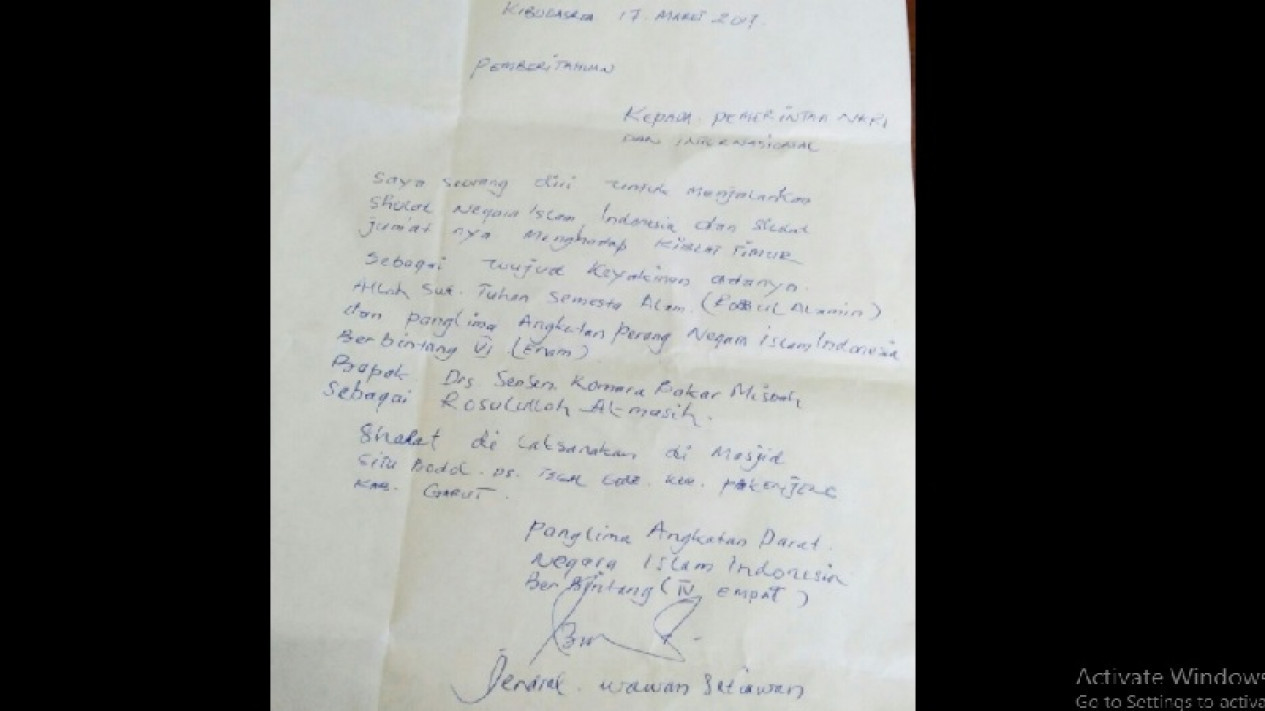 17. MARET 2017.
PEMBERITAHUAN
KEPADA. PEMERINTAH
DAN INTERNASIONAL
Saya Seorang diri untuk menjalankan
Sholat Negara Islam Indonesia dan Sholat
jumat nya Menghadap KIBLAT TIMUR
Sebagai wujud Keyakinan adanya.
Allah Swt. Tuhan Semesta Alam. (Robbul Alamin)
dan panglima Angkatan perang Negara Islam Indonesia
Berbintang VI (Enam)
Bapak Drs. Sensen Komara Bakar Misbah
Sebagai Rosululloh Al-masih.
Sholat di Laksanakan di Masjid
Situ Bodol. DS. TEGAL KEC. PAKENJENG
KAB. GARUT.
Panglima Angkatan Darat.
Negara Islam Indonesia
Ber Bintang (IV EMPAT)
Jendral. Wawan Setiawan
Activate Windows
Go to Settings to activa